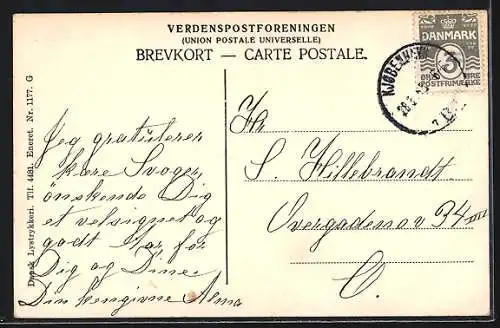 VERDENSPOSTFORENINGEN
(UNION POSTALE UNIVERSELLE)
BREVKORT — CARTE POSTALE.
DANMARK
3
ØRE ØRE
POSTFRIMÆRKE
KJØBENHAVN
Dansk Lystrykkeri. Tlf. 4491. Eneret. Nr. 1177. G
Jeg gratulerer
kære Svoger,
önskende Dig
et velsignet og
godt Aar for
Dig og Dine.
Din hengivne Alma
Hr.
S. Hillebrandt
Overgaden o v 34 III
C.